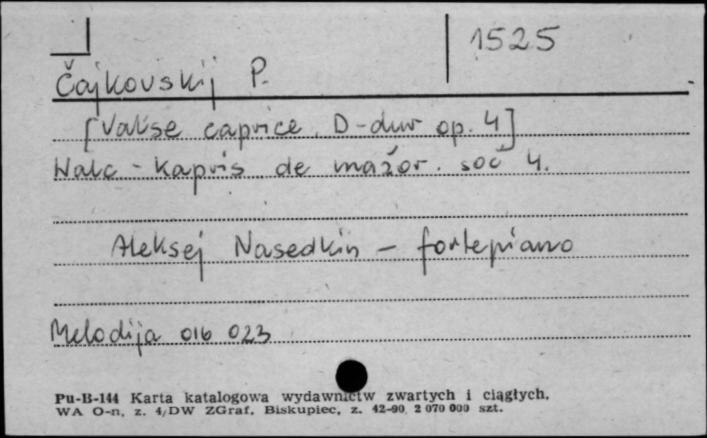 1525
Čajkovskij P.
[Valse caprice. D-dur op. 4]
Walc - Kapris de mažor. soč 4.
Aleksej Nasedkin - fortepiano
Melodija 016 023
Pu-B-144 Karta katalogowa wydawnictw zwartych i ciągłych.
WA O-n, z. 4/DW ZGraf. Biskupiec, z. 42-90 2 070 000 szt.